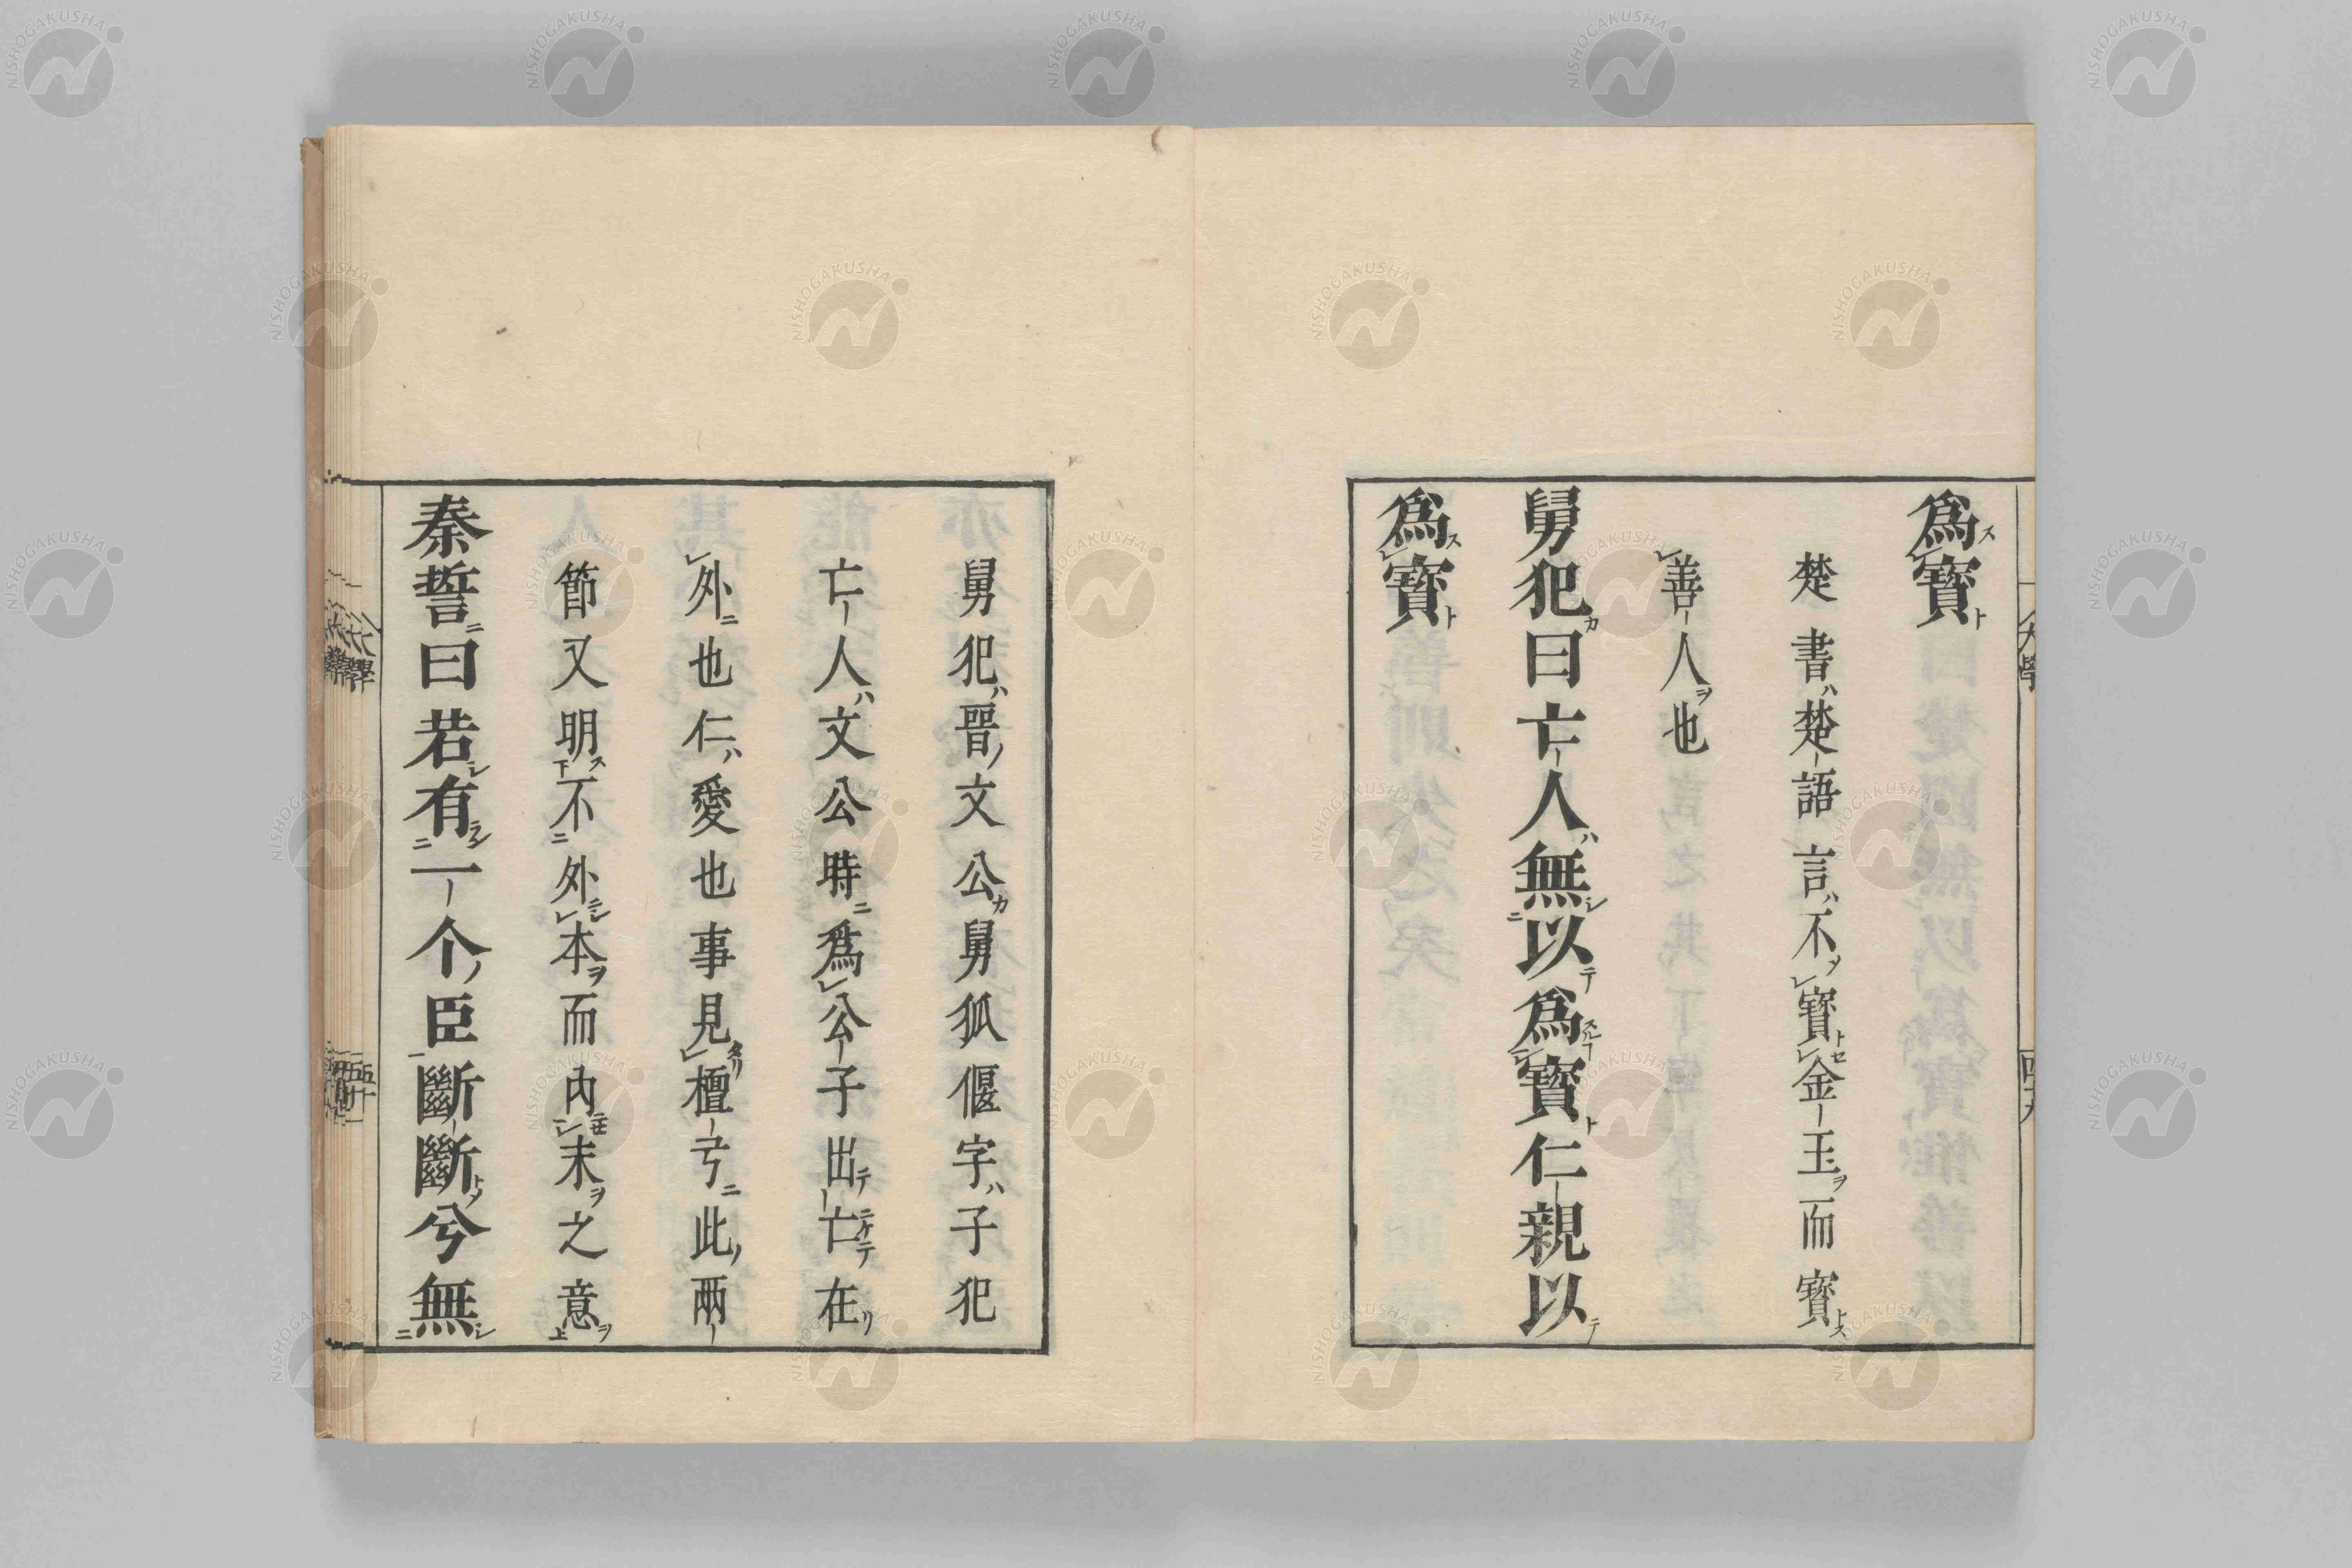 爲寳
楚書楚語言不寳金玉而寳
善人也
舅犯曰亡人無以爲寳仁親以
爲寳
舅犯晋文公舅狐偃字子犯
亡人文公時爲公子出亡在
外也仁愛也事見檀弓此兩
節又明不外本而内末之意
秦誓曰若有一个臣斷斷兮無
大學
NISHOGAKUSHA